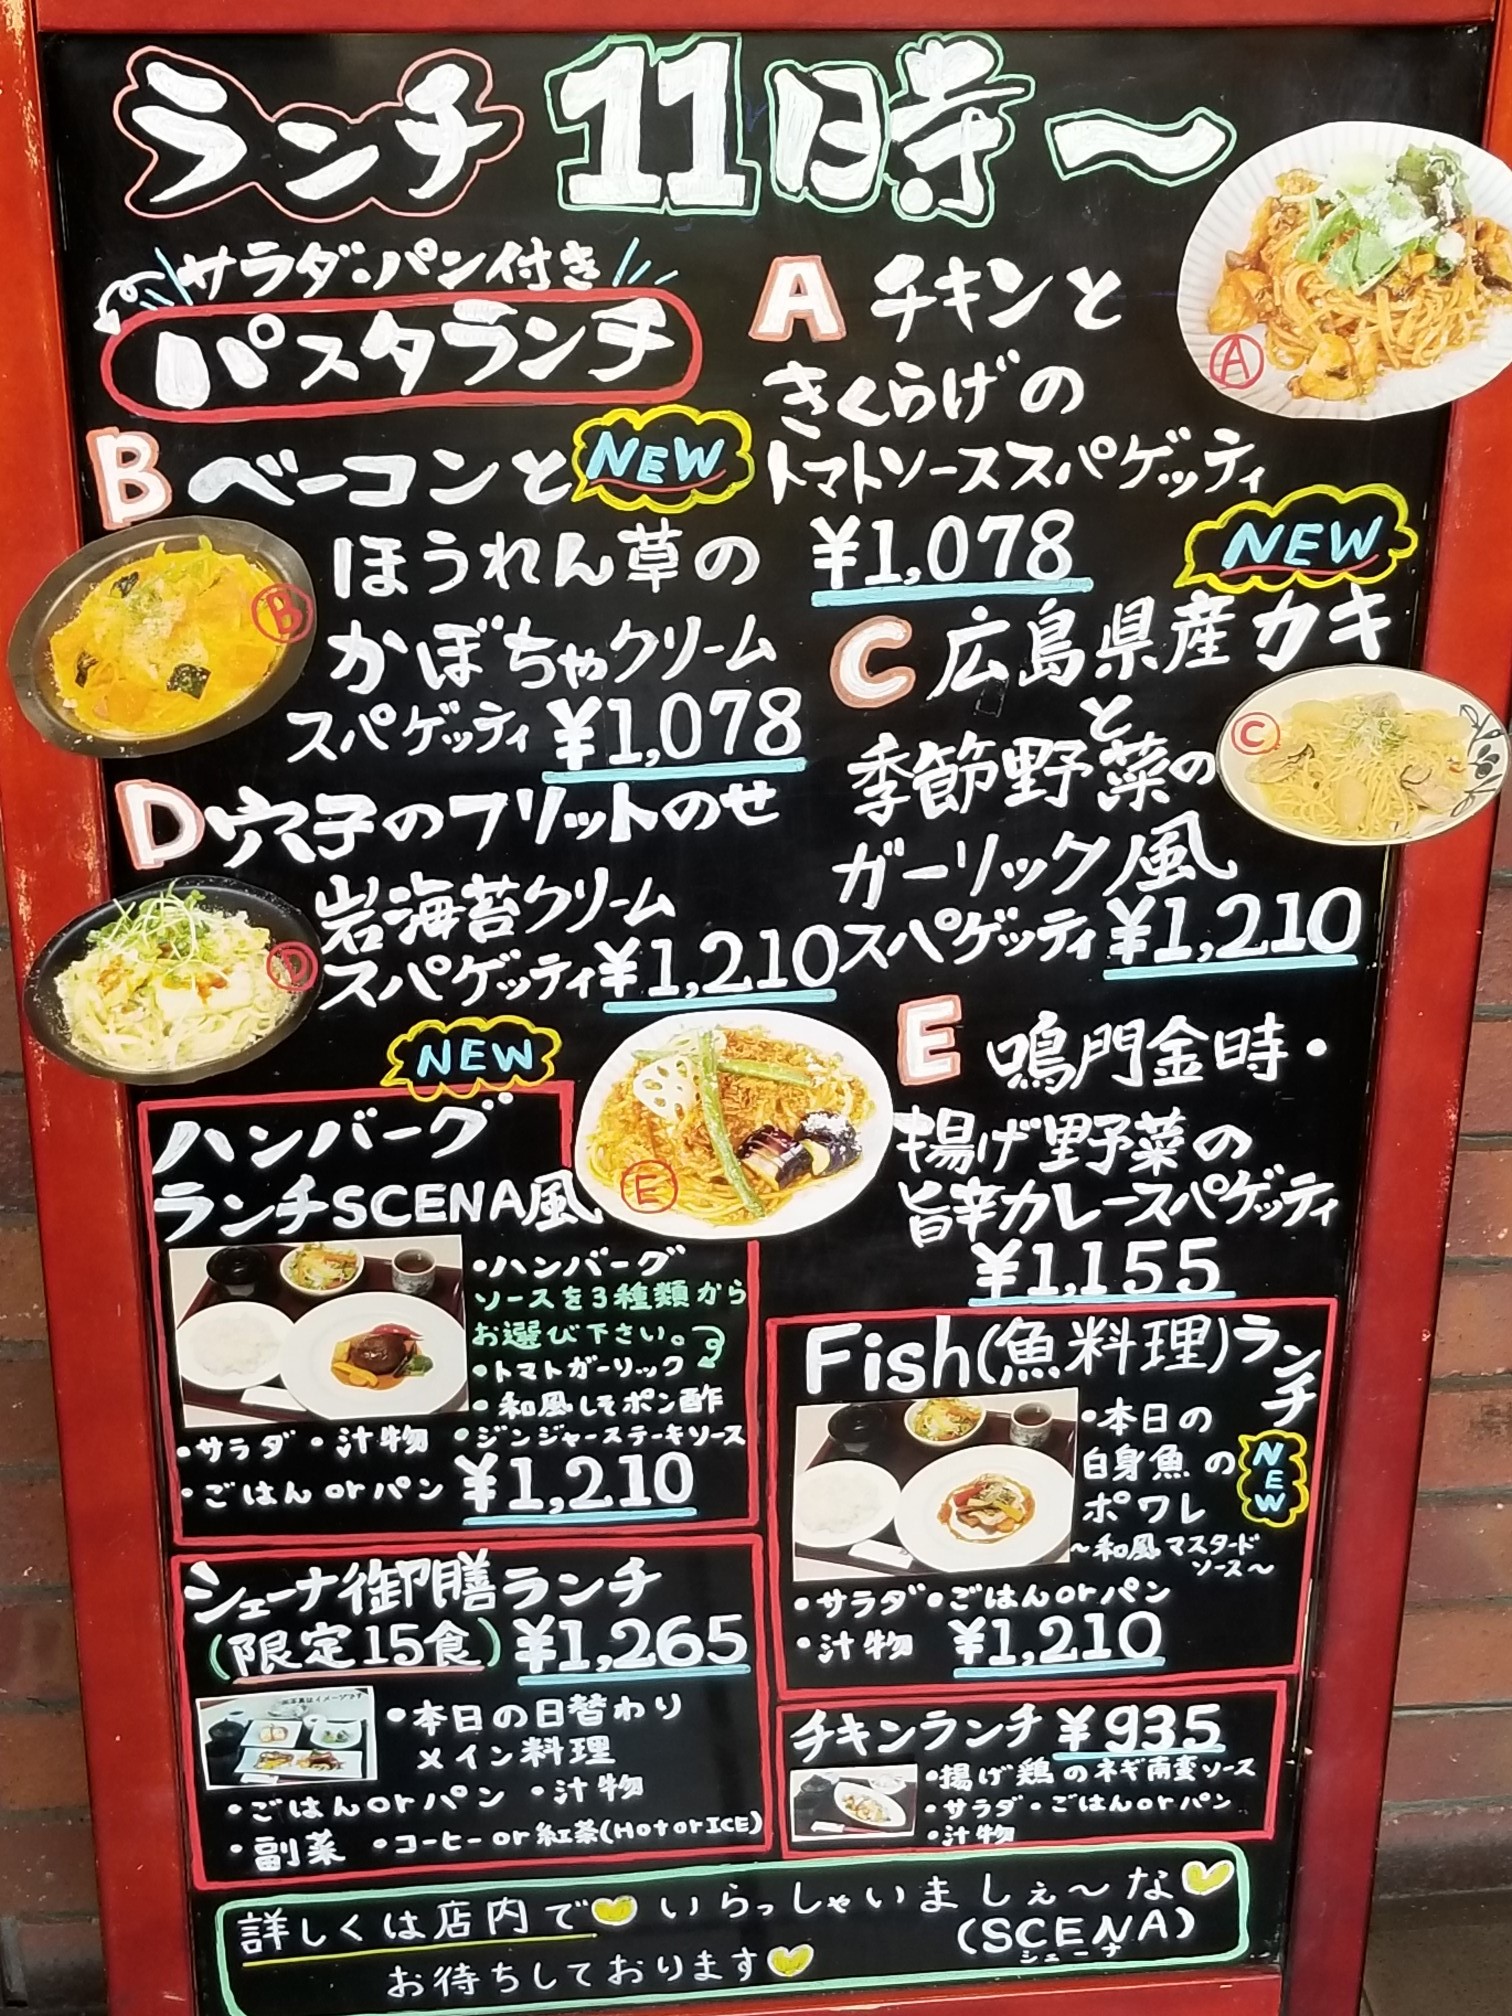 ランチ 11時〜
サラダ・パン付き
パスタランチ
A チキンと
きくらげの
トマトソーススパゲッティ
¥1,078
A
B ベーコンと NEW
ほうれん草の
かぼちゃクリーム
スパゲッティ ¥1,078
B
NEW
C 広島県産カキ
と
季節野菜の
ガーリック風
スパゲッティ ¥1,210
C
D 穴子のフリットのせ
岩海苔クリーム
スパゲッティ ¥1,210
D
E 鳴門金時・
揚げ野菜の
旨辛カレースパゲッティ
¥1,155
E
NEW
ハンバーグ
ランチSCENA風
・ハンバーグ
ソースを3種類から
お選び下さい。
・トマトガーリック
・和風しそポン酢
・ジンジャーステーキソース
・サラダ ・汁物
・ごはんorパン ¥1,210
Fish(魚料理)ランチ
・本日の
白身魚の
ポワレ
NEW
〜和風マスタード
ソース〜
・サラダ・ごはんorパン
・汁物 ¥1,210
シェーナ御膳ランチ
(限定15食) ¥1,265
・本日の日替わり
メイン料理
・ごはんorパン ・汁物
・副菜 ・コーヒーor紅茶(HotorICE)
チキンランチ ¥935
・揚げ鶏のネギ南蛮ソース
・サラダ・ごはんorパン
・汁物
詳しくは店内で いらっしゃいましぇ〜な
(SCENA)
シェーナ
お待ちしております